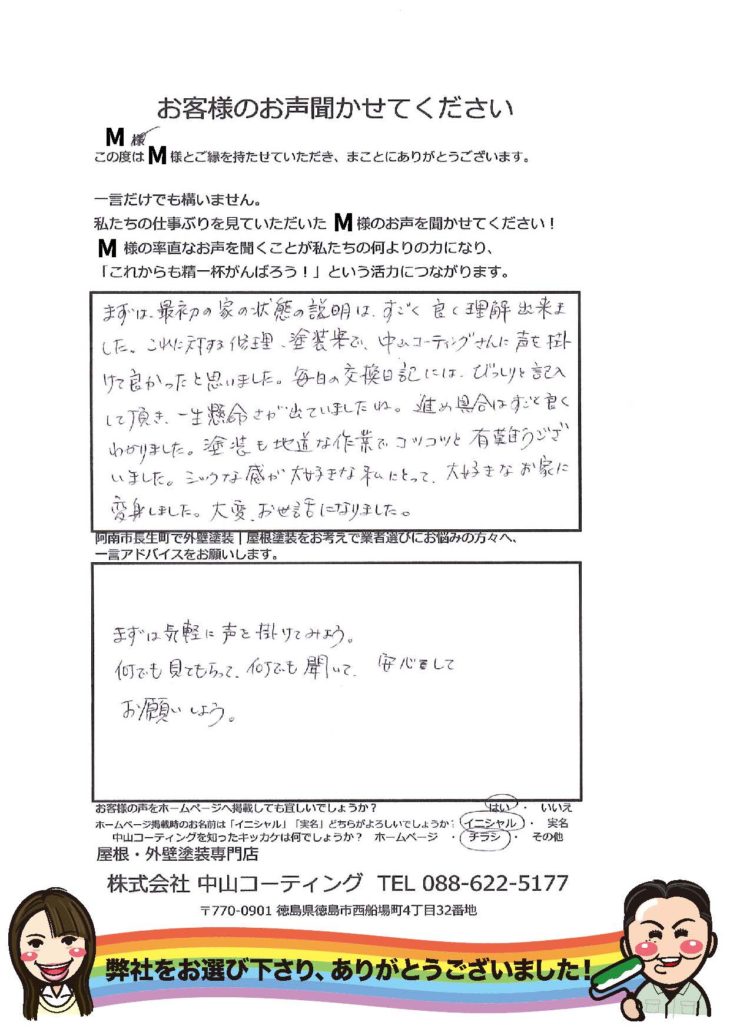 お客様のお声聞かせてください
M 様
この度は M 様とご縁を持たせていただき、まことにありがとうございます。
一言だけでも構いません。
私たちの仕事ぶりを見ていただいた M 様のお声を聞かせてください！
M 様の率直なお声を聞くことが私たちの何よりの力になり、
「これからも精一杯がんばろう！」という活力につながります。
まずは、最初の家の状態の説明は、すごく良く理解出来ま
した。これに対する修理、塗装案で、中山コーティングさんに声を掛
けて良かったと思いました。毎日の交換日記には、びっしりと記入
して頂き、一生懸命さが出ていましたね。進め具合はすごく良く
わかりました。塗装も地道な作業でコツコツと有難うござ
いました。シックな感が大好きな私にとって、大好きなお家に
変身しました。大変、お世話になりました。
阿南市長生町で外壁塗装｜屋根塗装をお考えで業者選びにお悩みの方々へ、
一言アドバイスをお願いします。
まずは気軽に声を掛けてみよう。
何でも見てもらって、何でも聞いて、安心をして
お願いしよう。
お客様の声をホームページへ掲載しても宜しいでしょうか？ はい ・ いいえ
ホームページ掲載時のお名前は「イニシャル」「実名」どちらがよろしいでしょうか？ イニシャル ・ 実名
中山コーティングを知ったキッカケは何でしょうか？ ホームページ ・ チラシ ・ その他
屋根・外壁塗装専門店
株式会社 中山コーティング TEL 088-622-5177
〒770-0901 徳島県徳島市西船場町4丁目32番地
弊社をお選び下さり、ありがとうございました！